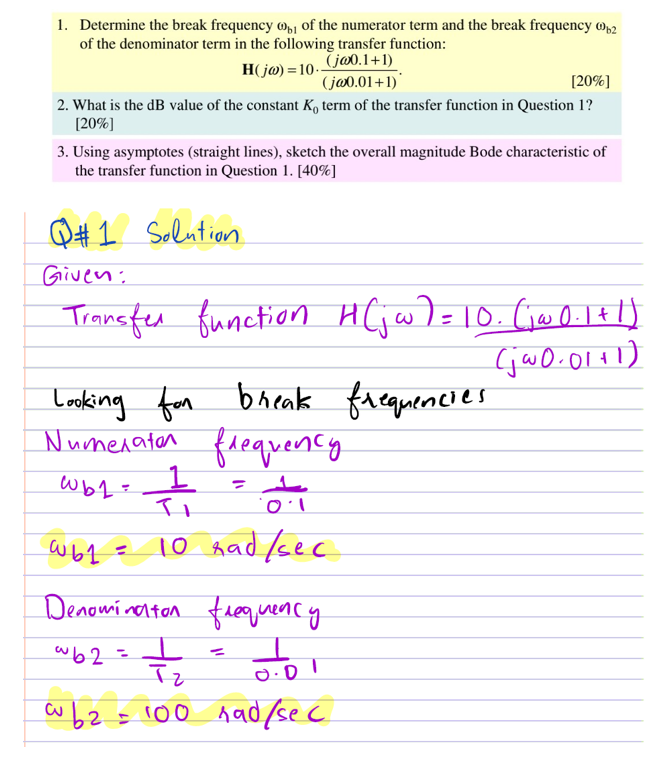 1. Determine the break frequency ω_b1 of the numerator term and the break frequency ω_b2
of the denominator term in the following transfer function:
H(jω) = 10 · (jω0.1+1) / (jω0.01+1).
[20%]
2. What is the dB value of the constant K_0 term of the transfer function in Question 1?
[20%]
3. Using asymptotes (straight lines), sketch the overall magnitude Bode characteristic of
the transfer function in Question 1. [40%]
Q#1 Solution
Given:
Transfer function H(jω) = 10. (jω0.1+1) / (jω0.01+1)
Looking for break frequencies
Numerator frequency
ωb1 = 1/T1 = 1/0.1
ωb1 = 10 rad/sec
Denominator frequency
ωb2 = 1/T2 = 1/0.01
ωb2 = 100 rad/sec